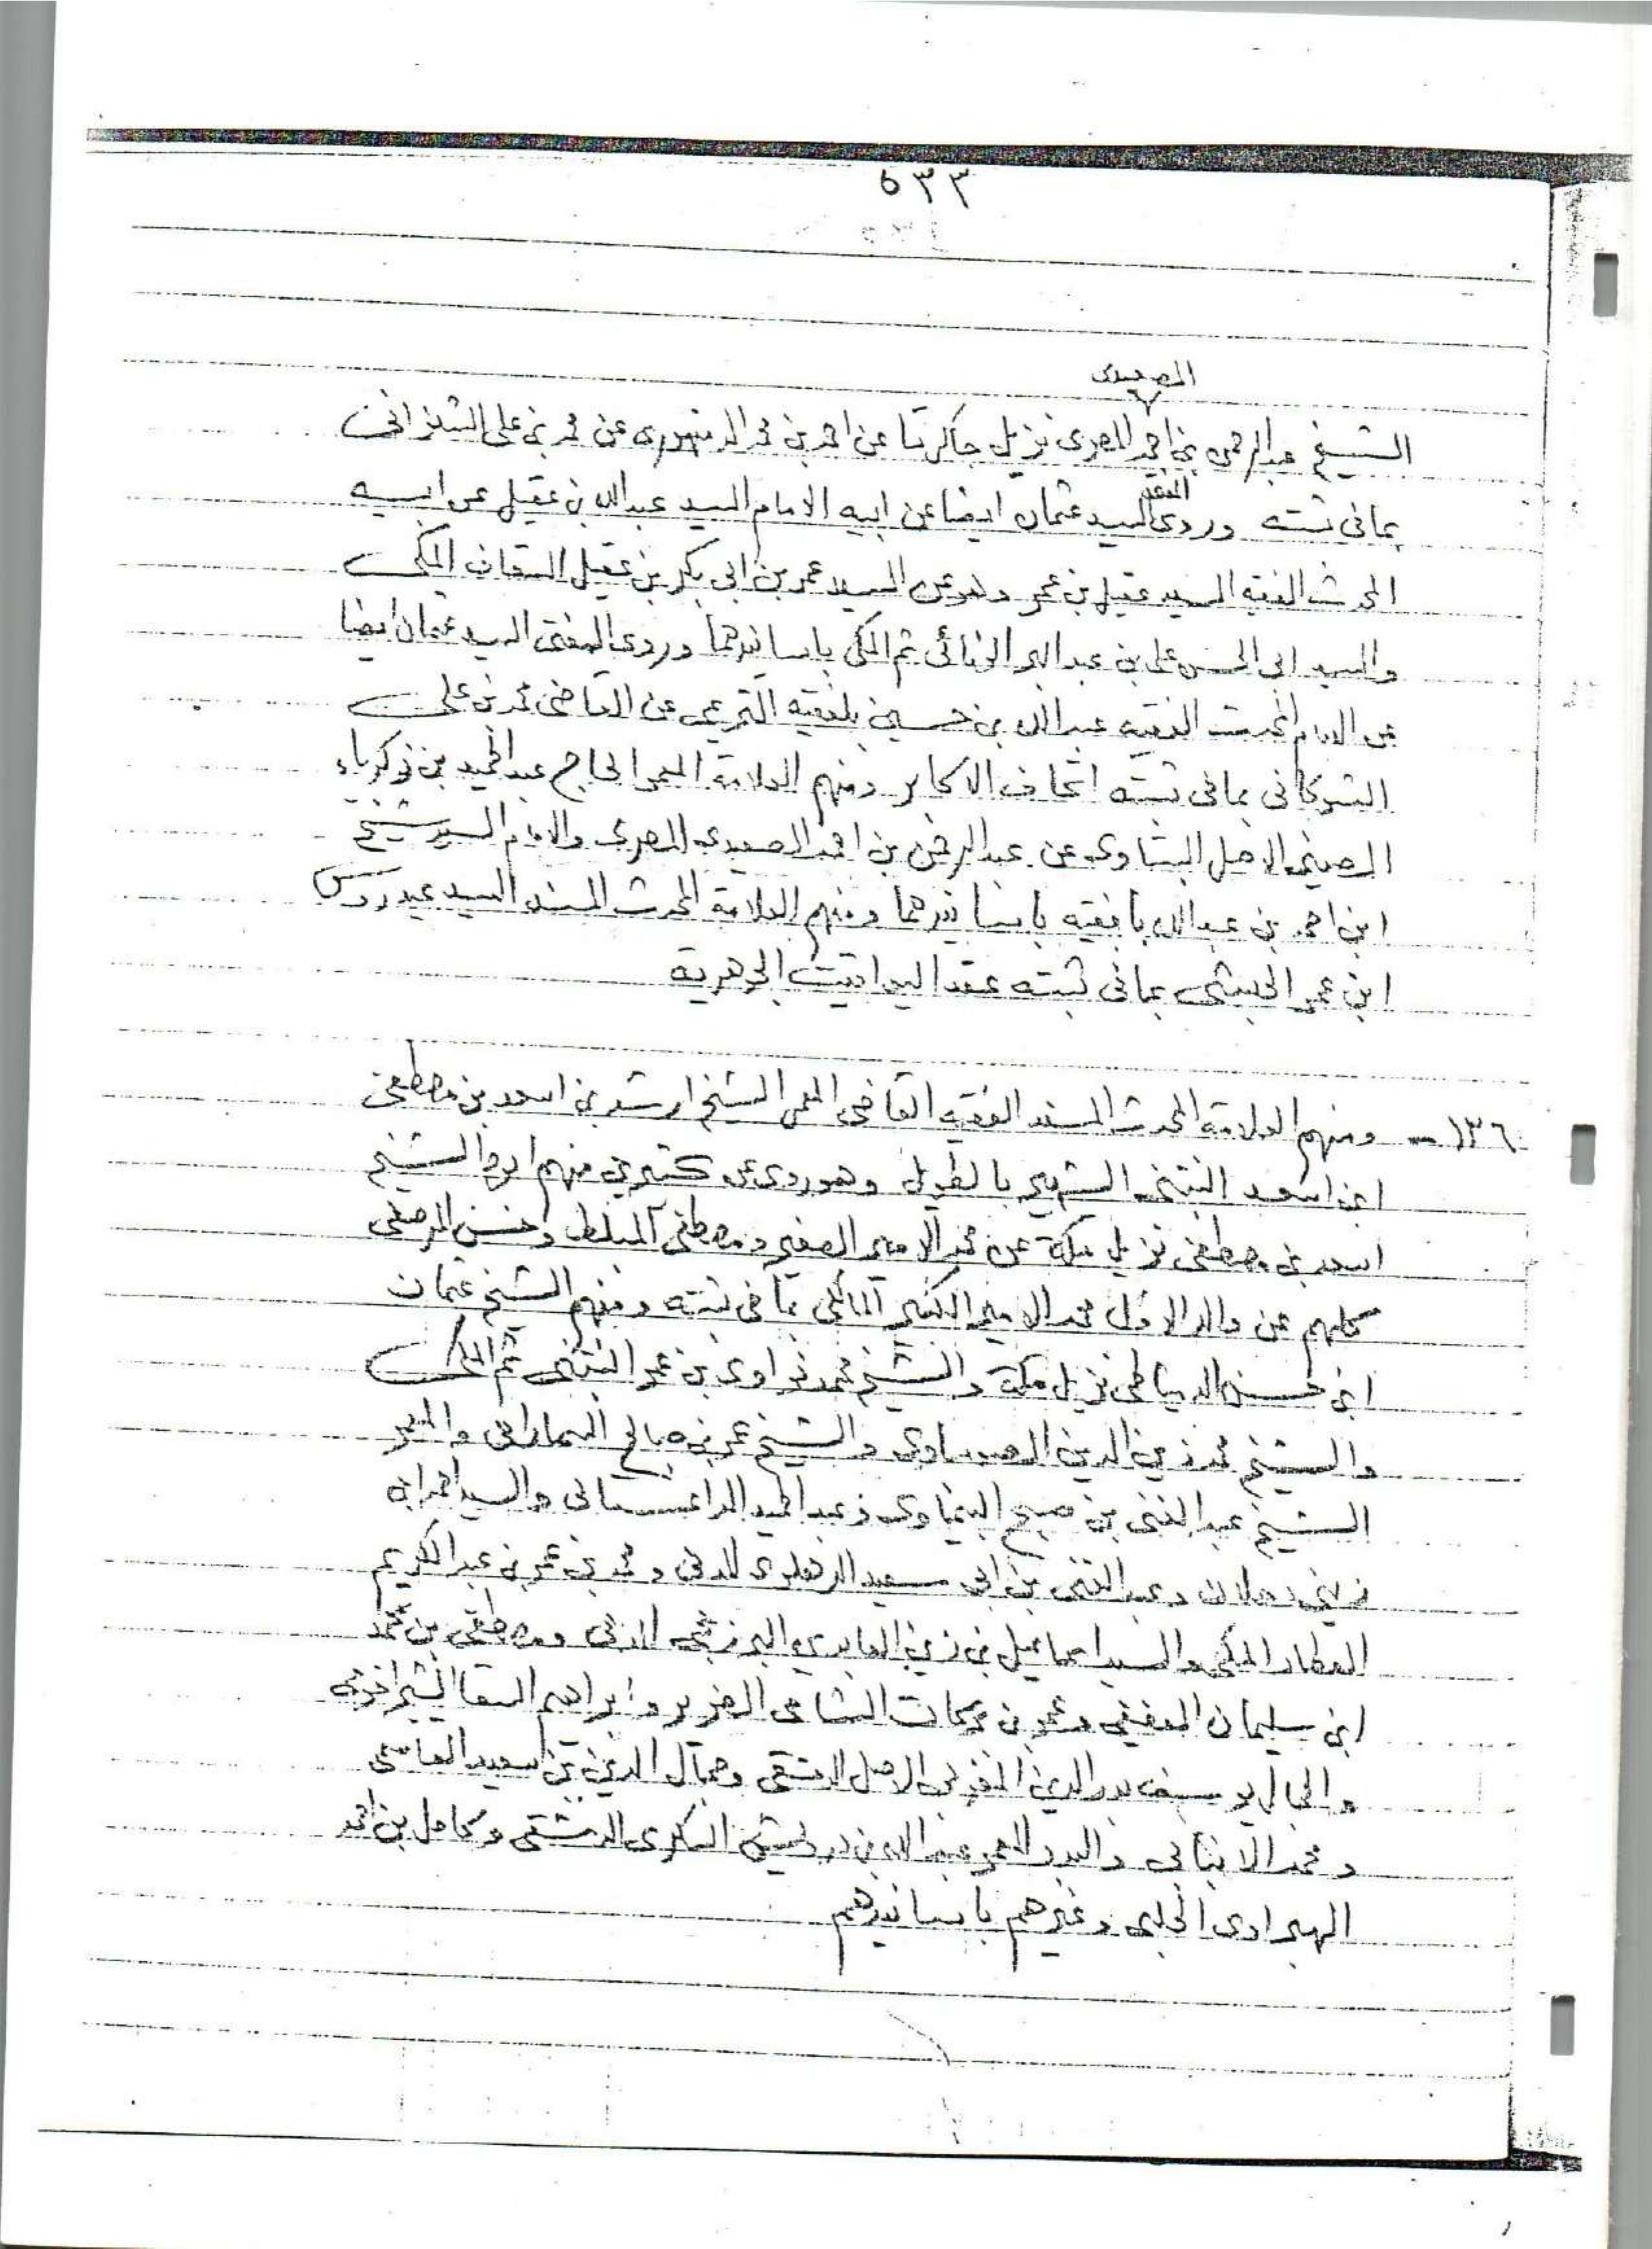 ٥٣٣
الصعيدى
الشيخ عبد الرحمن بن احمد المصرى نزيل جاكرتا عن احمد بن محمد الدمنهورى عن محمد بن على الشنوانى
بما فى ثبته وروى المفتى السيد عثمان ايضا عن ابيه الامام السيد عبد الله بن عقيل عن ابيه
المحدث الفقيه السيد عقيل بن عمر وهو عن السيد عمر بن ابى بكر بن عقيل السقاف المكى
والسيد ابى الحسن على بن عبد البر الونائى ثم المكى باسانيدهما وروى المفتى السيد عثمان ايضا
عن الامام المحدث الفقيه عبد الله بن حسين بلفقيه التريمى عن القاضى محمد بن على
الشوكانى بما فى ثبته اتحاف الاكابر ومنهم العلامة المعمر الحاج عبد الحميد بن زكرياء
الصينى الاصل البتاوى عن عبد الرحمن بن احمد الصعيدى المصرى والامام السيد شيخ
ابن احمد بن عبد الله بافقيه باسانيدهما ومنهم العلامة المحدث المسند السيد عيدروس
ابن عمر الحبشى بما فى ثبته عقد اليواقيت الجوهرية
١٣٦ - ومنهم العلامة المحدث المسند الفقيه القاضى المعمر الشيخ ارشد بن اسعد بن مصطفى
ابن اسعد البنتنى الشهير بالطويل وهو روى عن كثيرين منهم ابوه الشيخ
اسعد بن مصطفى نزيل مكة عن محمد الامير الصغير ومصطفى المبلط وحسن القويسنى
كلهم عن والد الاول محمد الامير الكبير المالكى بما فى ثبته ومنهم الشيخ عثمان
ابن حسن الدمياطى نزيل مكة والشيخ محمد نواوى بن عمر البنتنى ثم المكى
والشيخ محمد زين الدين الصومباوى والشيخ عمر بن صالح السمارانى والمعمر
الشيخ عبد الغنى بن صبح البيماوى وعبد الحميد الداغستانى والسيد احمد ابن
زينى دحلان وعبد الغنى بن ابى سعيد الدهلوى المدنى ومحمد بن عمر بن عبد الكريم
العطار المكى والسيد اسماعيل بن زين العابدين البرزنجى المدنى ومصطفى بن محمد
ابن سليمان العفيفى وعمر بن بركات الشامى الضرير وابراهيم السقا
والجمال يوسف بدر الدين المغربى الاصل الدمشقى وجمال الدين بن سعيد القاسمى
ومحمد الانبابى والبدر المعمر عبد الله بن درويش السكرى الدمشقى وكامل بن احمد
الهبراوى الحلبى وغيرهم باسانيدهم